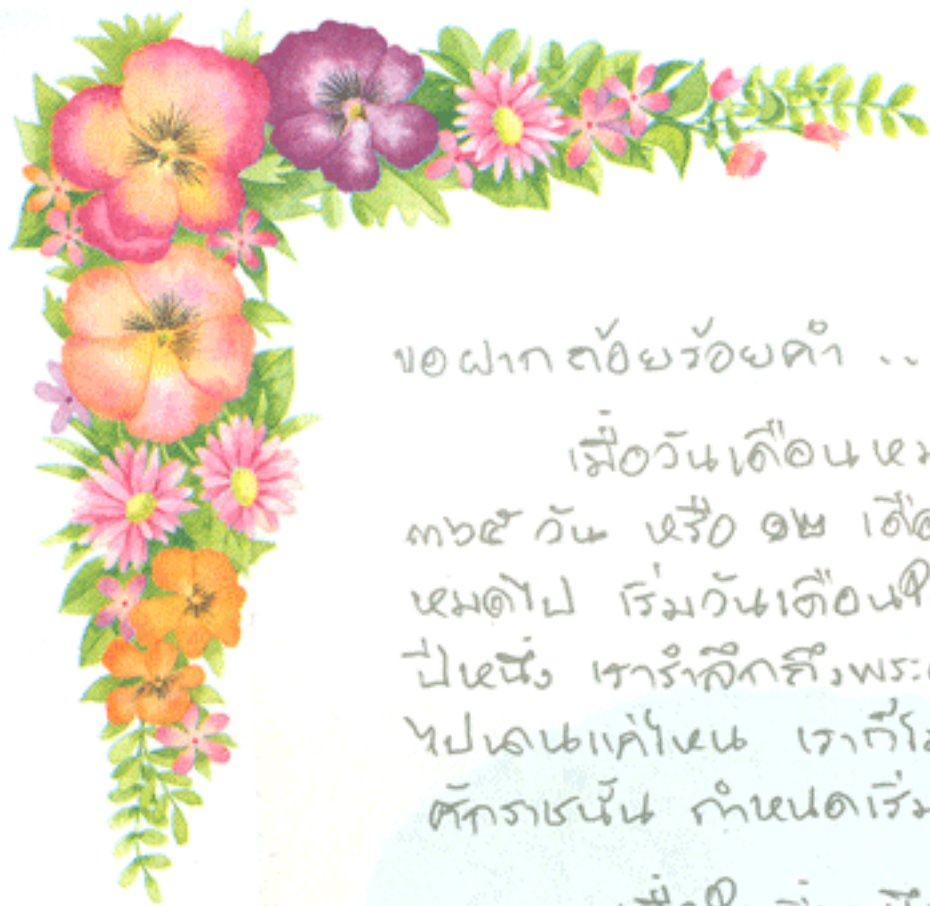 ขอฝากถ้อยร้อยคำ ..
เมื่อวันเดือนหม
๓๖๕ วัน หรือ ๑๒ เดือ
หมดไป เริ่มวันเดือนใ
ปีหนึ่ง เรารำลึกถึงพระ
ไปนานแค่ไหน เราก็
ศักราชนั้น กำหนดเริ่ม